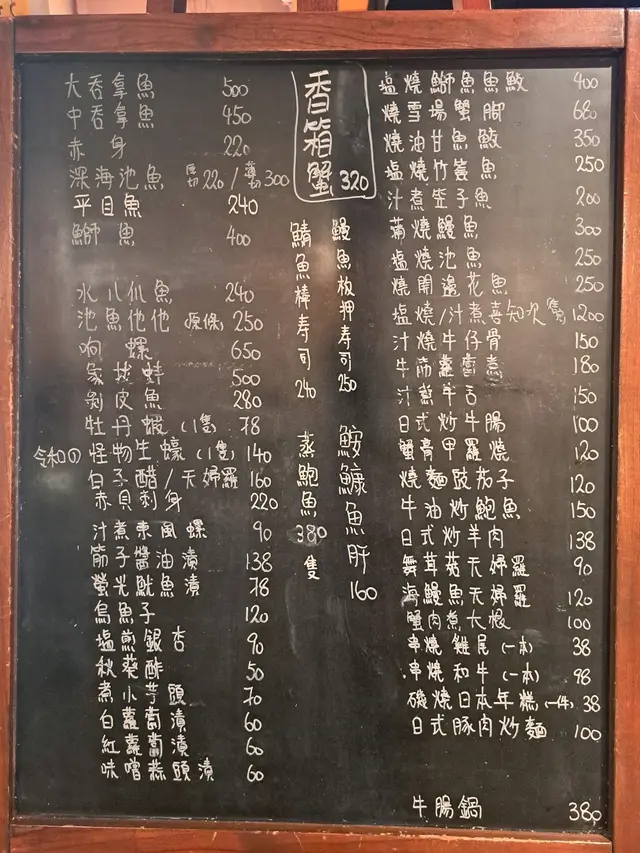 大吞拿魚 500
中吞拿魚 450
赤身 220
深海池魚 厚切220/薄切300
平目魚 240
鰤魚 400
水八爪魚 240
池魚他他 原條 250
响螺 650
象拔蚌 500
剝皮魚 280
牡丹蝦(1隻) 78
令和の怪物生蠔(1隻) 140
白子醋/天婦羅 160
赤貝刺身 220
汁煮東風螺 90
筋子醬油漬 138
螢光魷魚漬 78
烏魚子 120
塩煎銀杏 90
秋葵酢 50
煮小芋頭 70
白蘿蔔漬 60
紅蘿蔔漬 60
味噌蒜頭漬 60
香箱蟹 320
鯖魚棒寿司 240
鰻魚板押寿司 250
蒸鮑魚 380隻
鮟鱇魚肝 160
塩燒鰤魚魚鮫 400
燒雪場蟹脚 680
燒油甘魚鮫 350
塩燒竹簽魚 250
汁煮笙子魚 200
蒲燒鰻魚 300
塩燒池魚 250
燒開邊花魚 250
塩燒/汁煮喜知次 隻 1200
汁燒牛仔骨 150
牛筋蘿蔔煮 180
汁煮牛舌 150
日式炒牛腸 100
蟹膏甲羅燒 120
燒麵豉茄子 120
牛油炒鮑魚 150
日式炒羊肉 138
舞茸菇天婦羅 90
海鰻魚天婦羅 120
蟹肉煮大根 100
串燒雞尾(一本) 38
串燒和牛(一本) 98
磯燒日本年糕(一件) 38
日式豚肉炒麵 100
牛腸鍋 380